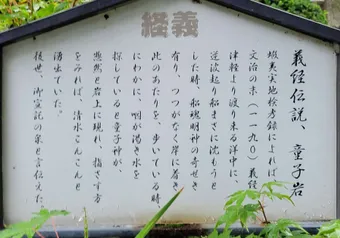 義経
義経伝説、童子岩
蝦夷実地検考録によれば
文治の末(一一九〇)義経
津軽より渡り来る洋中に、
逆波起り船まさに沈もうと
した時、船魂明神の奇せき
有り、つつがなく岸に着き
此のあたりを、歩いている時
にわかに、咽が渇き水を
探していると童子神が、
忽然と岩上に現れ、指さす方
をみれば、清水こんこんと
湧出ていた。
後世、御宝訊の泉と言伝えた。